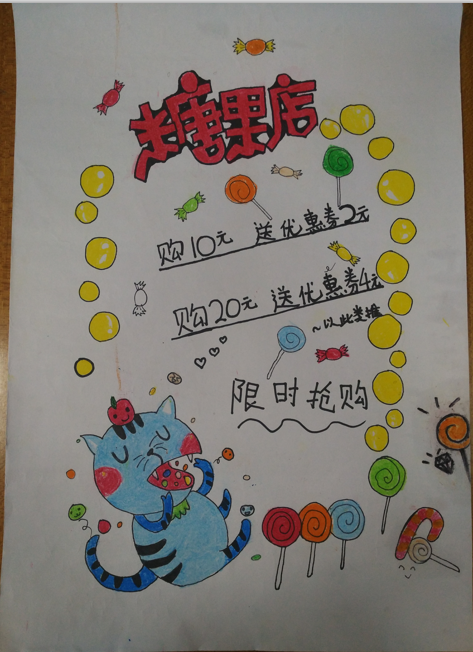 糖果店
购10元 送优惠券2元
购20元 送优惠券4元
~以此类推
限时抢购